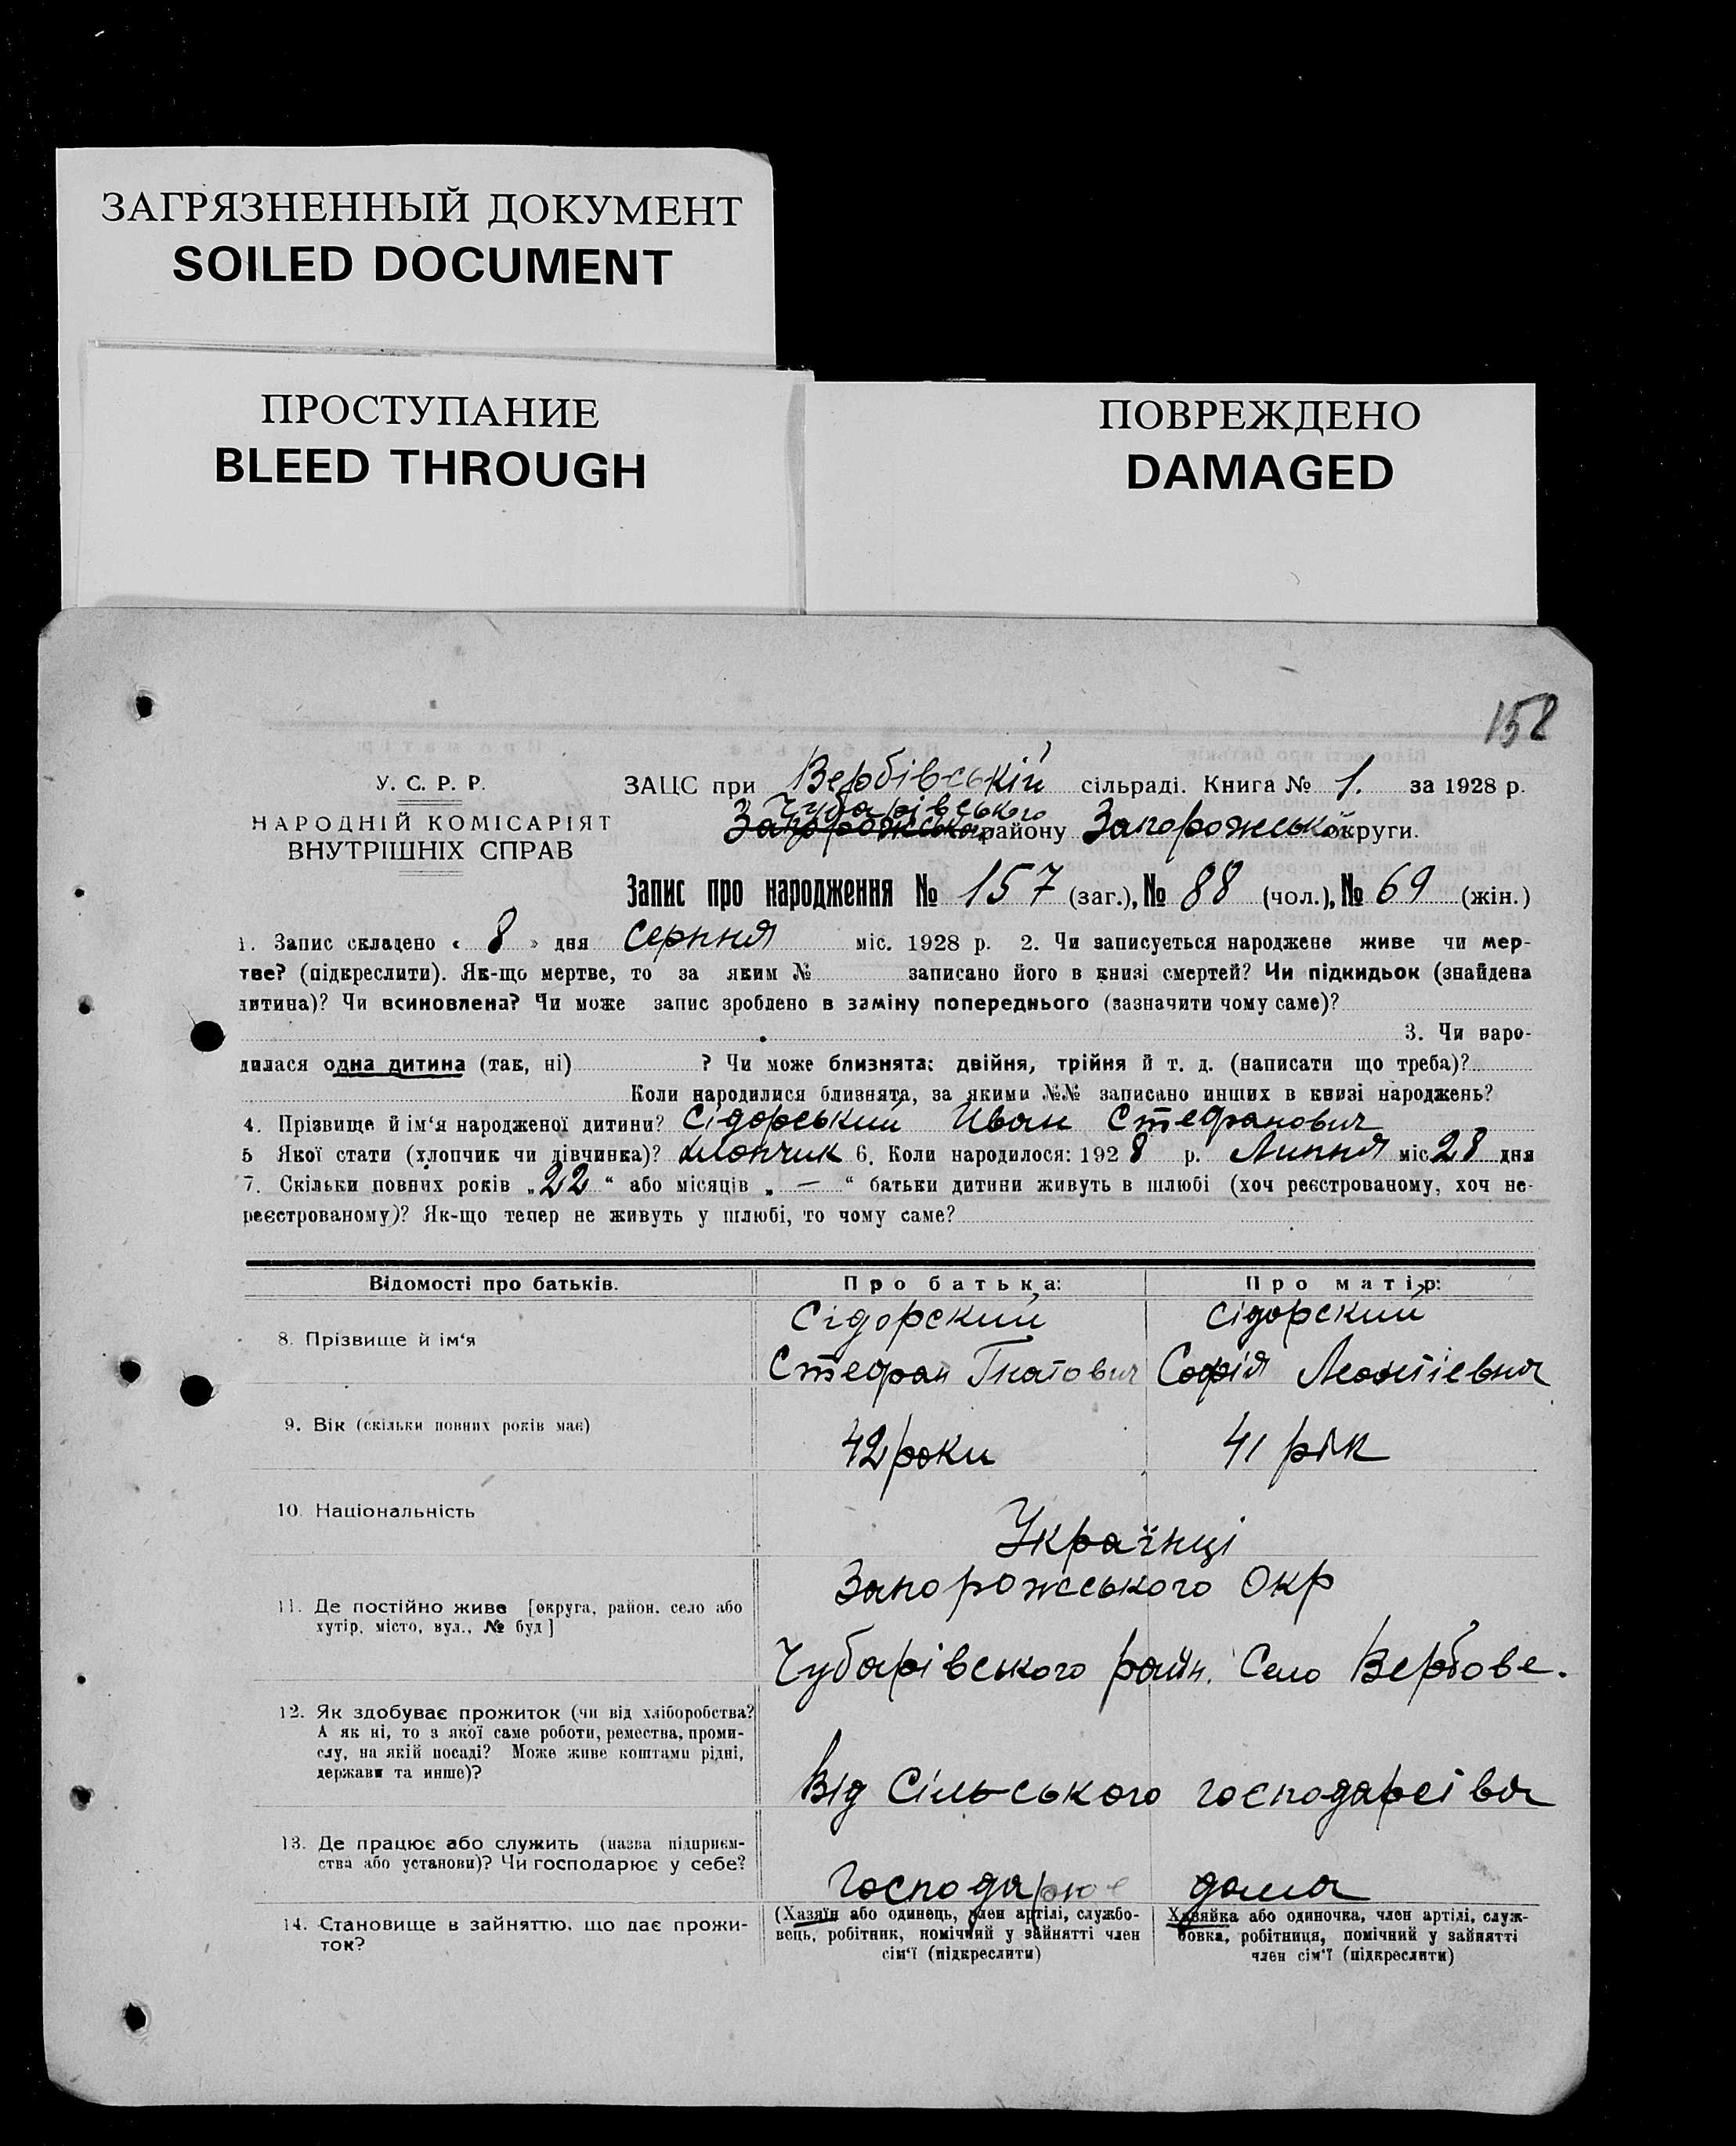 ЗАГРЯЗНЕННЫЙ ДОКУМЕНТ
SOILED DOCUMENT
ПРОСТУПАНИЕ
BLEED THROUGH
ПОВРЕЖДЕНО
DAMAGED
158
У. С. Р. Р.
НАРОДНІЙ КОМІСАРІЯТ
ВНУТРІШНІХ СПРАВ
ЗАЦС при Вербівській сільраді. Книга № 1. за 1928 р.
Чубарівського
Запорожського району Запорожської округи.
Запис про народження № 157 (заг.), № 88 (чол.), № 69 (жін.)
1. Запис складено « 8 » дня серпня міс. 1928 р. 2. Чи записується народжене живе чи мер-
тве? (підкреслити). Як-що мертве, то за яким № записано його в книзі смертей? Чи підкидьок (знайдена
дитина)? Чи всиновлена? Чи може запис зроблено в заміну попереднього (зазначити чому саме)?
3. Чи наро-
дилася одна дитина (так, ні) ? Чи може близнята: двійня, трійня й т. д. (написати що треба)?
Коли народилися близнята, за якими №№ записано инших в книзі народжень?
4. Прізвище й ім'я народженої дитини? Сідорський Иван Стефанович
5 Якої стати (хлопчик чи дівчинка)? хлопчик 6. Коли народилося: 1928 р. Липня міс 28 дня
7. Скільки повних років „22“ або місяців „—“ батьки дитини живуть в шлюбі (хоч реєстрованому, хоч не-
реєстрованому)? Як-що тепер не живуть у шлюбі, то чому саме?
Відомості про батьків. Про батька: Про матір:
8. Прізвище й ім'я
Сідорский Сідорский
Стефан Гнатович Софія Леонтіевна
9. Вік (скільки повних років має)
42 роки 41 рік
10. Національність
Українці
Запорожського Окр
11. Де постійно живе [округа, район, село або
хутір, місто, вул., № буд]
Чубарівського райн. Село Вербове.
12. Як здобуває прожиток (чи від хліборобства?
А як ні, то з якої саме роботи, ремества, проми-
слу, на якій посаді? Може живе коштами рідні,
держави та инше)?
Від Сільського господарства
13. Де працює або служить (назва підприєм-
ства або установи)? Чи господарює у себе?
Господарює дома
14. Становище в зайняттю, що дає прожи-
ток?
(Хазяїн або одинець, член артілі, службо-
вець, робітник, помічний у зайнятті член
сім'ї (підкреслити)
Хазяйка або одиночка, член артілі, служ-
бовка, робітниця, помічний у зайнятті
член сім'ї (підкреслити)